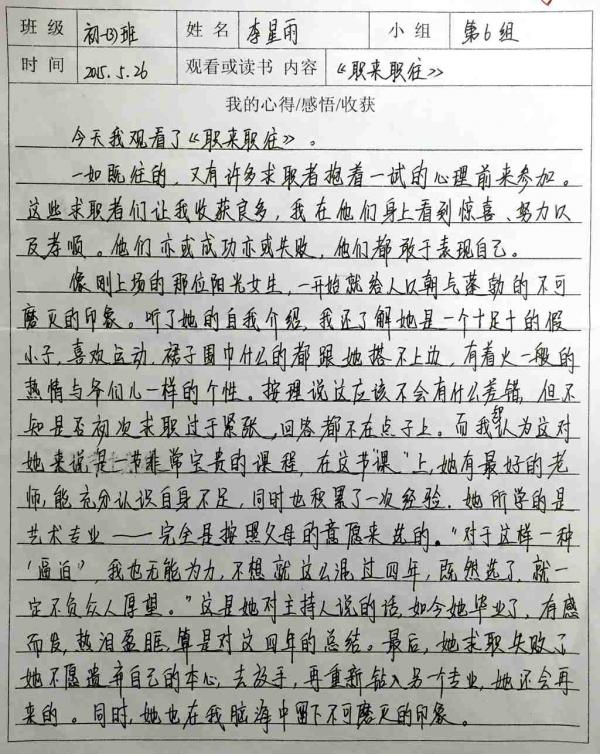 班级 初一(3)班 姓名 李星雨 小组 第6组
时间 2015.5.26 观看或读书 内容 《职来职往》
我的心得/感悟/收获
今天我观看了《职来职往》。
一如既往的，又有许多求职者抱着一试的心理前来参加。
这些求职者们让我收获良多，我在他们身上看到惊喜、努力以
及孝顺。他们亦或成功亦或失败，他们都敢于表现自己。
像刚上场的那位阳光女生，一开始就给人以朝气蓬勃的不可
磨灭的印象。听了她的自我介绍，我还了解她是一个十足十的假
小子，喜欢运动，裙子围巾什么的都跟她搭不上边，有着火一般的
热情与爷们儿一样的个性。按理说这应该不会有什么差错，但不
知是否初次求职过于紧张，回答都不在点子上。而我却认为这对
她来说是一节非常宝贵的课程，在这节"课"上，她有最好的老
师，能充分认识自身不足，同时也积累了一次经验。她所学的是
艺术专业——完全是按照父母的意愿来选的。"对于这样一种
'逼迫'，我也无能为力，不想就这么混过四年，既然选了，就一
定不负众人厚望。"这是她对主持人说的话，如今她毕业了，有感
而发，热泪盈眶，算是对这四年的总结。最后，她求职失败了
她不愿遗弃自己的本心，去放手，再重新钻入另个专业，她还会再
来的。同时，她也在我脑海中留下不可磨灭的印象。